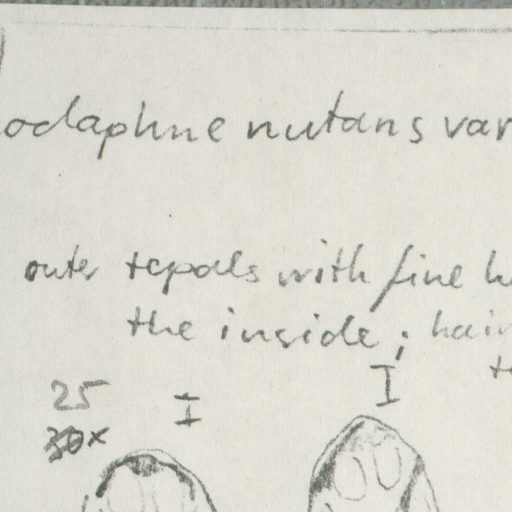 odaphne nutans var
outer tepals with fine h
the inside; hair
te
I
25 I
30x